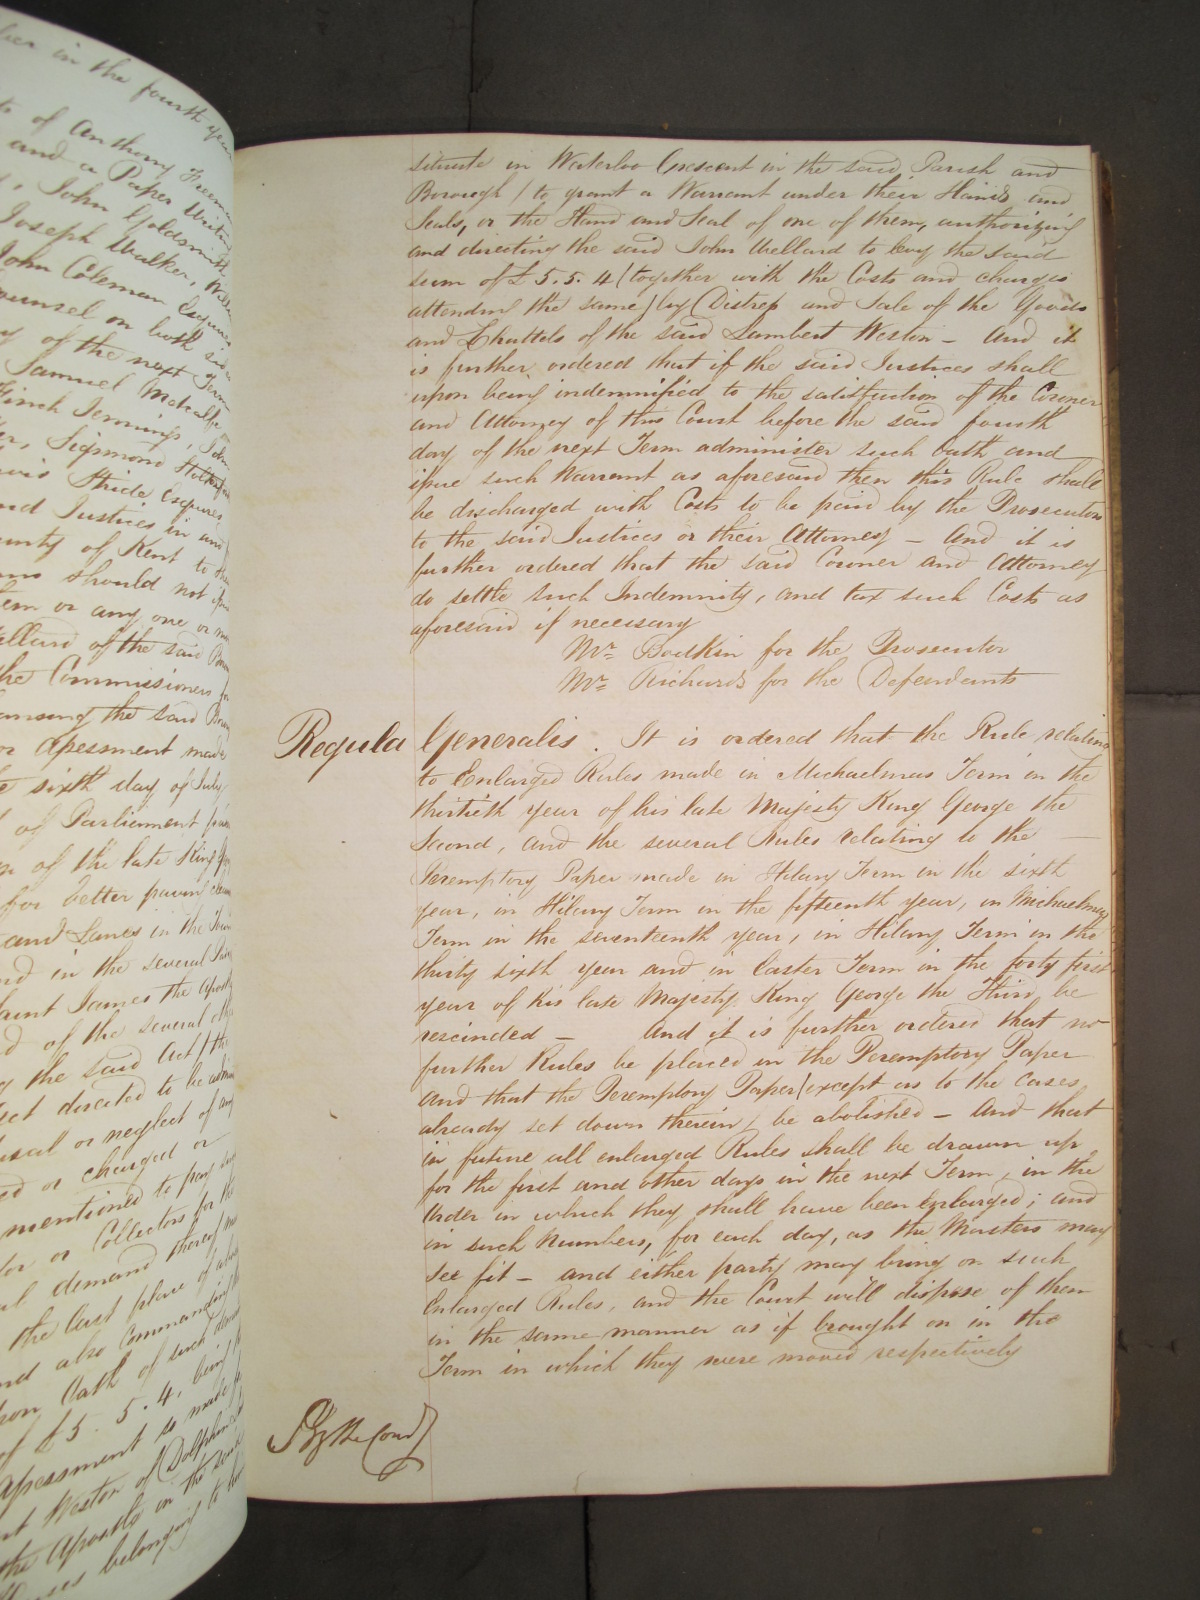 ber in the fourth year
ts of Anthony Freeman
and a Paper Writing
John Goldsmith
Joseph Walker, Will
John Coleman Esquires
Counsel on both sides
of the next Term
Samuel Metcalfe
Finch Jennings, John
Sigismond
Stride Esquires
and Justices in and
County of Kent to
should not
them or any one or
Wellard of the said
the Commissioners for
the said
or Assessment made
sixth day of July
of Parliament
of the late King
for better paving
and Lanes in the
and in the several
Saint James the Apostle
of the several
the said Act / the
Act directed to be
refusal or neglect of any
or charged or
mentioned to pay
or Collectors for the
demand thereof
the last place of
and also Commanding
upon Oath of such
of £5. 5. 4, being
Assessment so made
Weston of Dolphin
the Apostle in the said
belonging to
situate in Waterloo Crescent in the said Parish and
Borough / to grant a Warrant under their Hands and
Seals, or the Hand and Seal of one of them, authorizing
and directing the said John Wellard to levy the said
sum of £5. 5. 4 (together with the Costs and charges
attending the same) by Distress and Sale of the Goods
and Chattels of the said Lambert Weston – And it
is further ordered that if the said Justices shall
upon being indemnified to the satisfaction of the Coroner
and Attorney of this Court before the said fourth
day of the next Term administer such Oath and
issue such Warrant as aforesaid then this Rule shall
be discharged with Costs to be paid by the Prosecutors
to the said Justices or their Attorney – And it is
further ordered that the said Coroner and Attorney
do settle such Indemnity, and tax such Costs as
aforesaid if necessary
Mr. Bodkin for the Prosecutor
Mr. Richards for the Defendants
Regula Generalis. It is ordered that the Rule relating
to Enlarged Rules made in Michaelmas Term in the
thirtieth year of his late Majesty King George the
Second, and the several Rules relating to the
Peremptory Paper made in Hilary Term in the sixth
year, in Hilary Term in the fifteenth year, in Michaelmas
Term in the seventeenth year, in Hilary Term in the
thirty sixth year and in Easter Term in the forty first
year of his late Majesty King George the Third be
rescinded – And it is further ordered that no
further Rules be placed in the Peremptory Paper
and that the Peremptory Paper (except as to the cases
already set down therein) be abolished – And that
in future all enlarged Rules shall be drawn up
for the first and other days in the next Term, in the
Order in which they shall have been Enlarged; and
in such Numbers, for each day, as the Masters may
see fit – and either party may bring on such
Enlarged Rules, and the Court will dispose of them
in the same manner as if brought on in the
Term in which they were moved respectively
By the Court